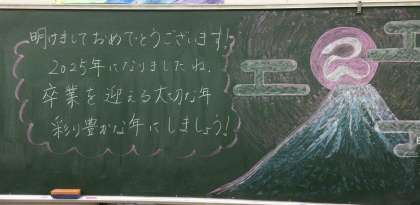 明けましておめでとうございます!
2025年になりましたね。
卒業を迎える大切な年
彩り豊かな年にしましょう!